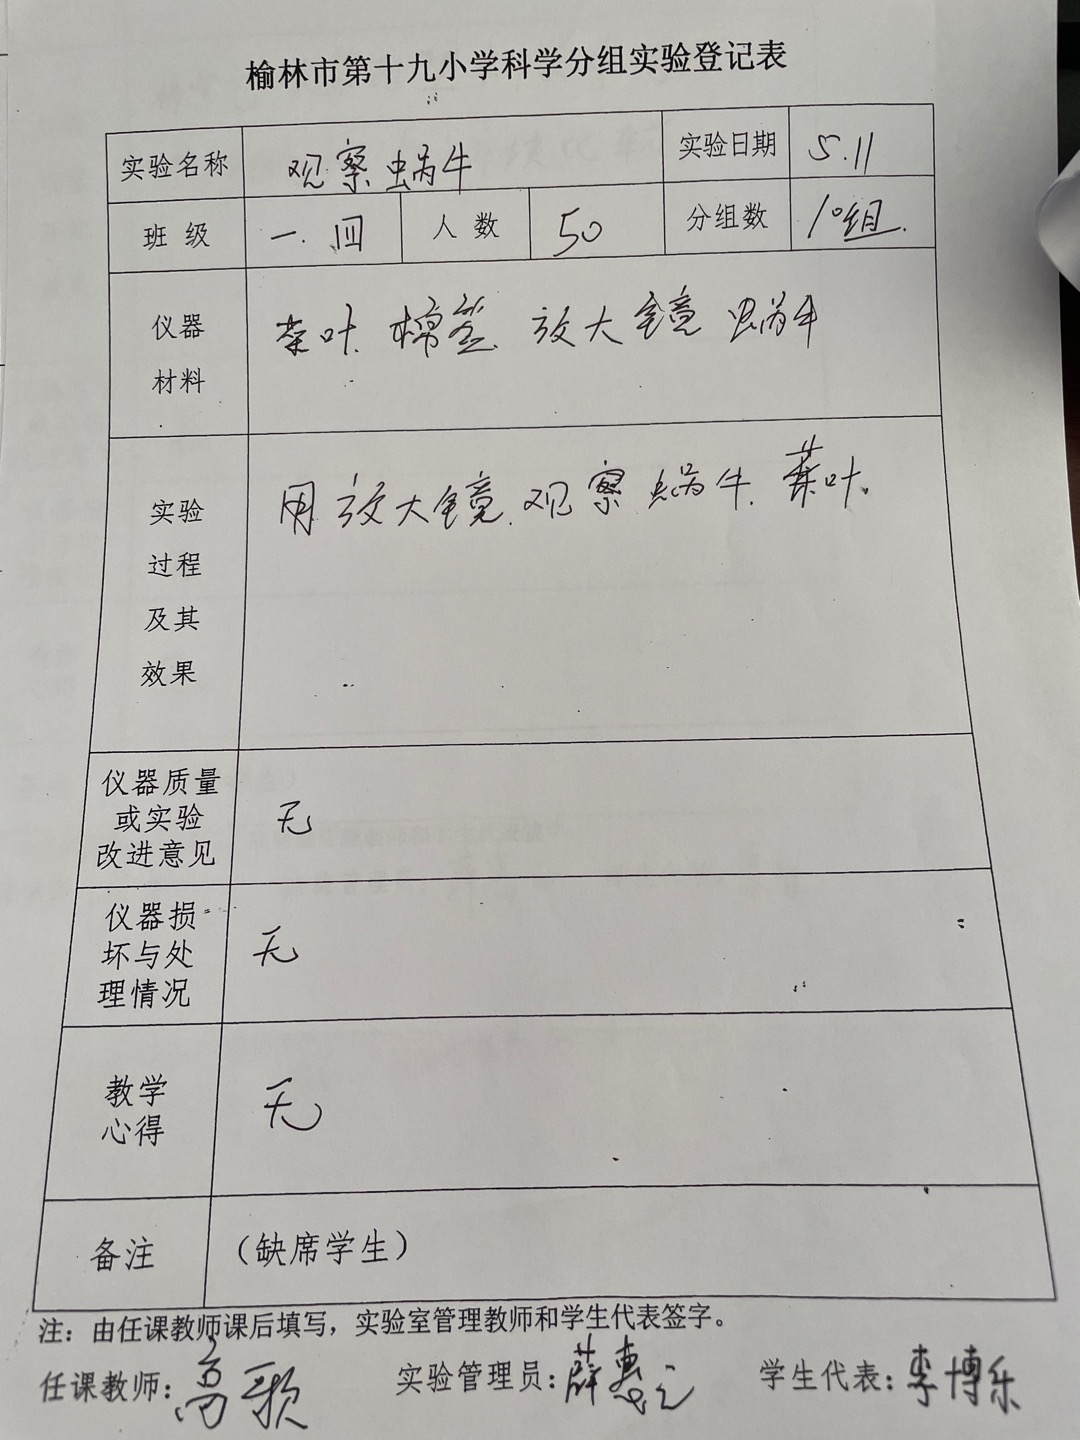 榆林市第十九小学科学分组实验登记表
实验名称 观察蜗牛 实验日期 5.11
班级 一.四 人数 50 分组数 10组.
仪器
材料
菜叶 棉签 放大镜 蜗牛
实验
过程
及其
效果
用放大镜观察蜗牛.菜叶.
仪器质量
或实验
改进意见
无
仪器损
坏与处
理情况
无
教学
心得
无
备注 (缺席学生)
注：由任课教师课后填写，实验室管理教师和学生代表签字。
任课教师：高 实验管理员：薛惠 学生代表：李博乐